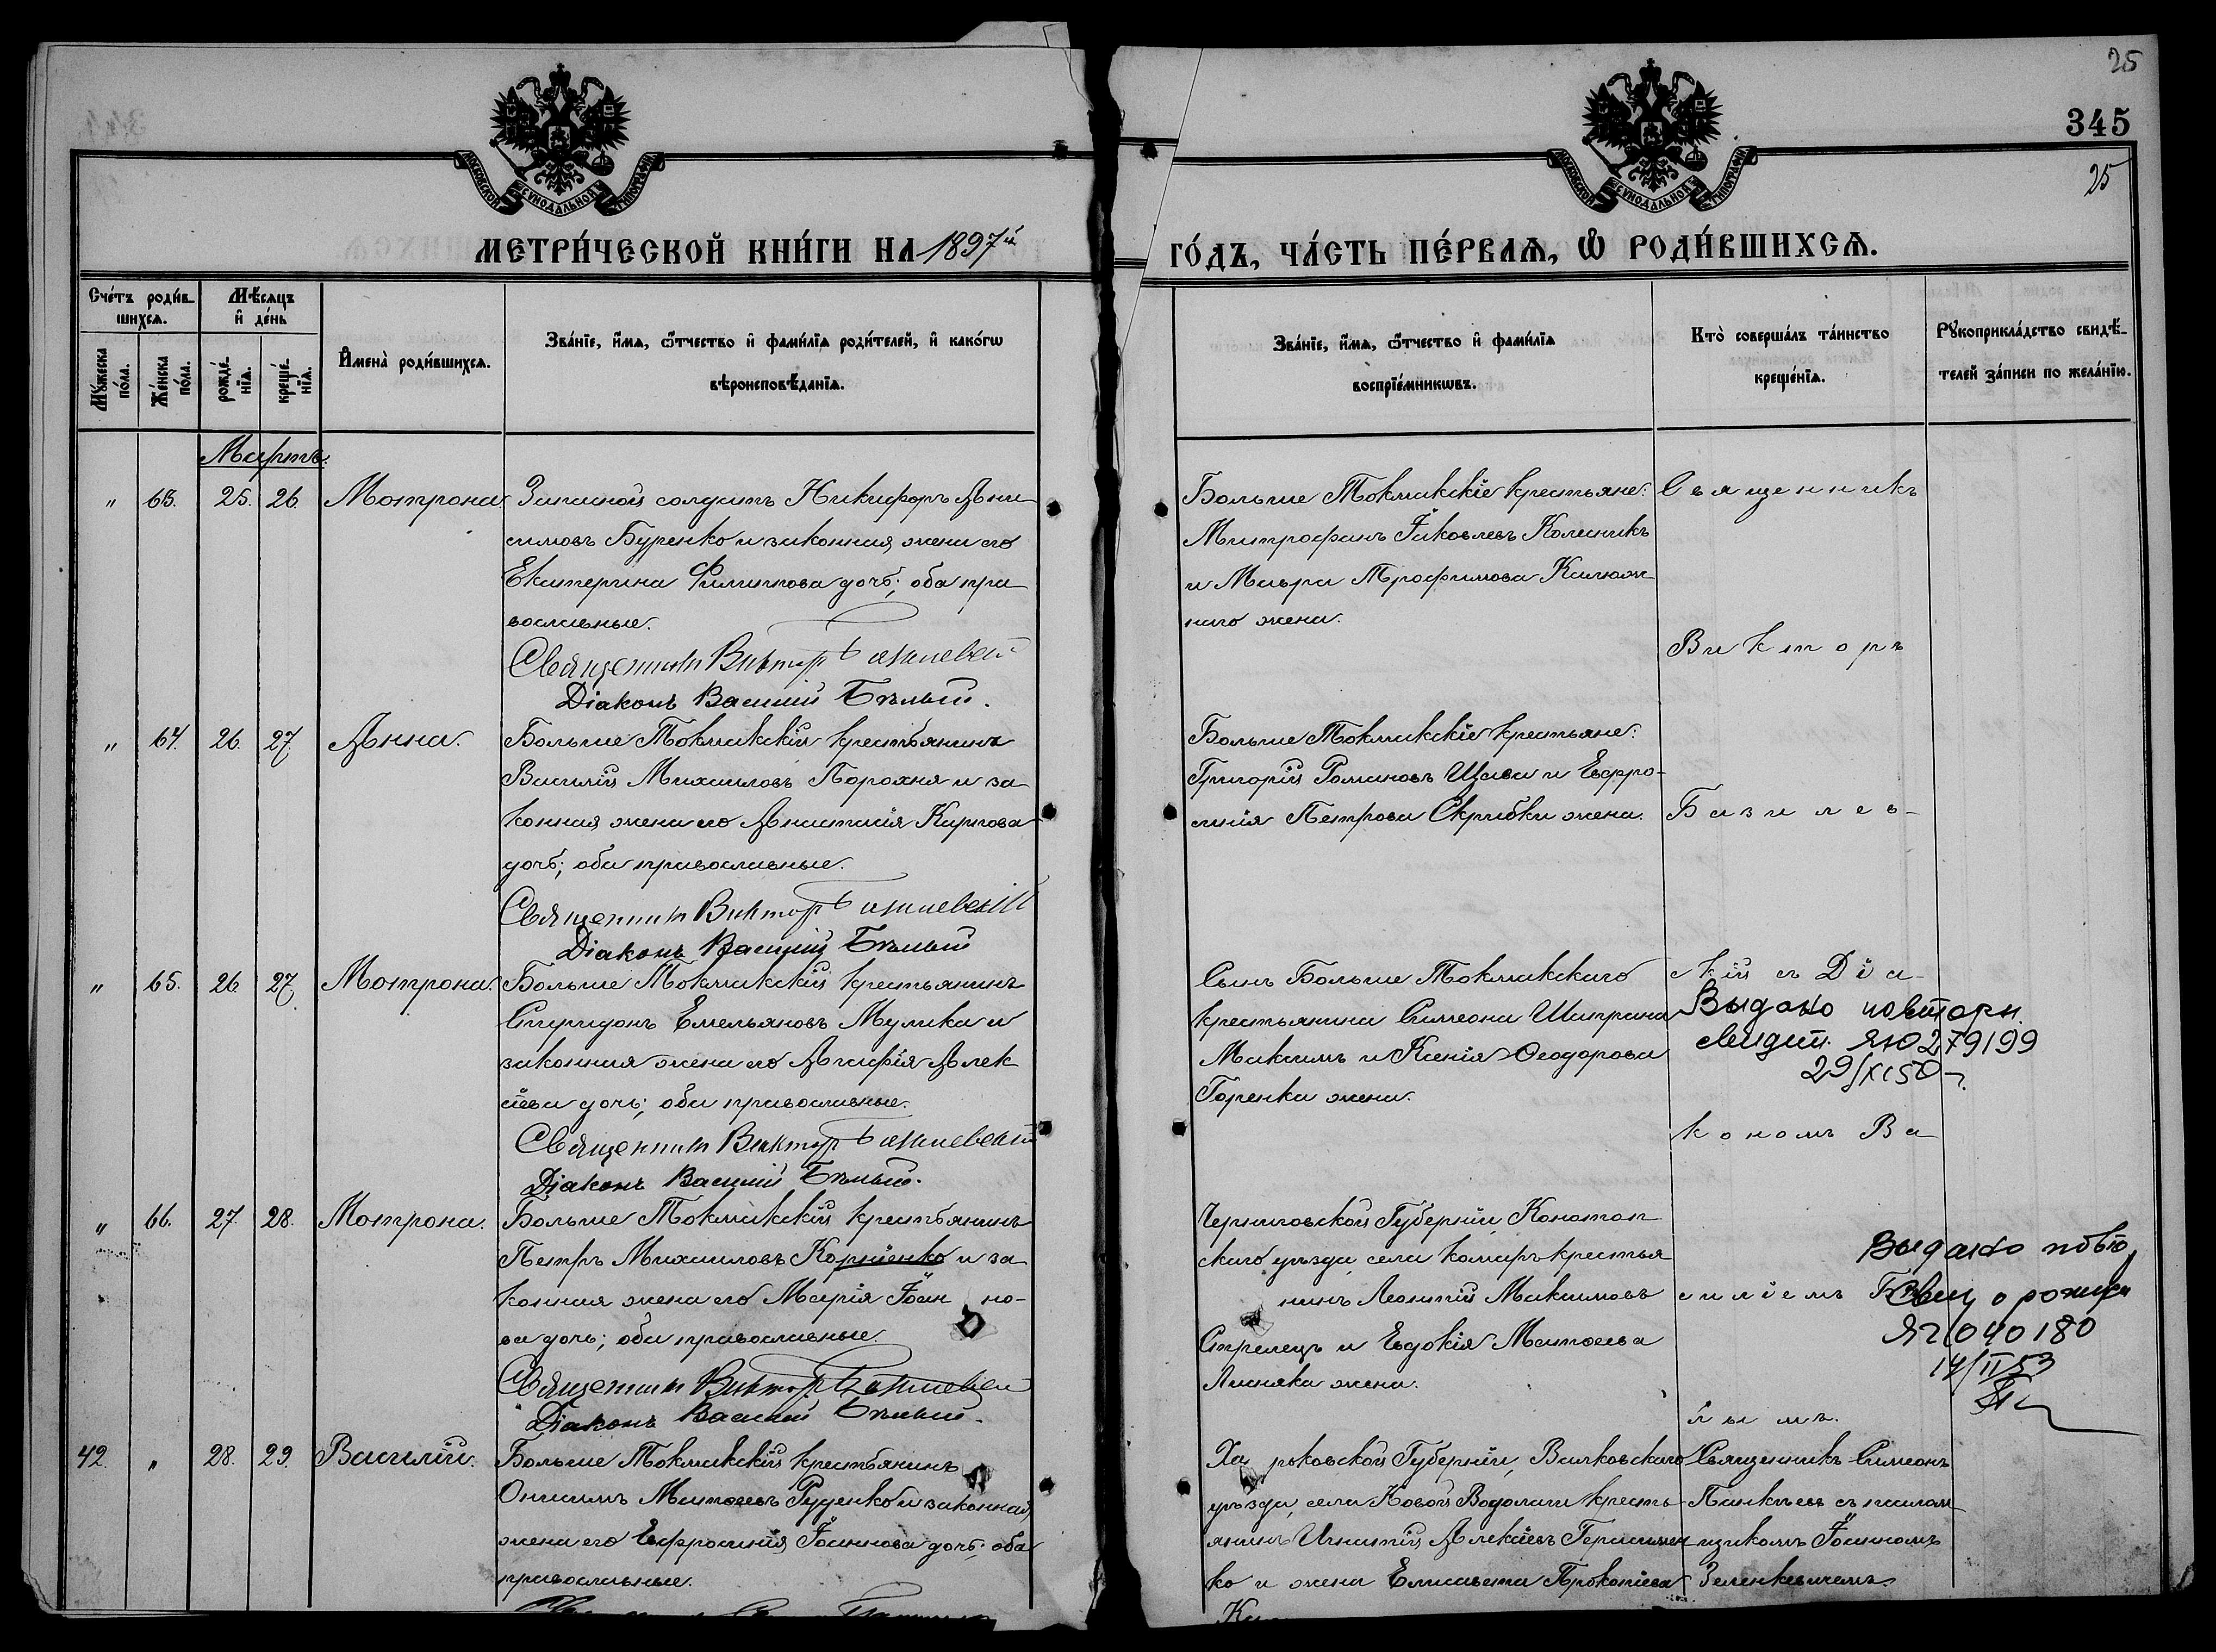 25
345
25
МОСКОВСКОЙ СѴНОДАЛЬНОЙ ТИПОГРАФІИ
МОСКОВСКОЙ СѴНОДАЛЬНОЙ ТИПОГРАФІИ
МЕТРИ́ЧЕСКОЙ КНИ́ГИ НА 1897й
ГО́ДЪ, ЧА́СТЬ ПЕ́РВАѦ, Ѡ РОДИ́ВШИХСѦ.
Сче́тъ роди́в-
шихсѧ.
Мꙋ́жеска по́ла.
Же́нска по́ла.
Мѣ́сѧцъ
и҆ де́нь
рожде́-
нїѧ.
креще́-
нїѧ.
И҆мена̀ роди́вшихсѧ.
Зва́нїе, и҆́мѧ, ѻ҆́тчество и҆ фами́лїѧ роди́телей, и҆ како́гѡ
вѣроисповѣ́данїѧ.
Зва́нїе, и҆́мѧ, ѻ҆́тчество и҆ фами́лїѧ
воспрїе́мникѡвъ.
Кто̀ соверша́лъ та́инство
креще́нїѧ.
Рꙋкоприкла́дство свидѣ́-
телей за́писи по жела́нїю.
Мартъ.
" 63. 25. 26. Мотрона.
Запасной солдатъ Никифоръ Ани
симовъ Буренко и законная жена его
Екатерина Филиппова дочь; оба пра
вославные.
Священникъ Викторъ Базилевскій
Діаконъ Василій Бѣлый.
Больше Токмакскіе крестьяне:
Митрофанъ Іаковлевъ Колесникъ
и Мавра Трофимова
наго жена.
Священникъ
Викторъ
" 64. 26. 27. Анна.
Больше Токмакскій крестьянинъ
Василій Михаиловъ Порохня и за
конная жена его Анастасія Карпова
дочь; оба православные.
Священникъ Викторъ Базилевскій
Діаконъ Василій Бѣлый
Больше Токмакскіе крестьяне:
Григорій Романовъ Щава и Евфро-
синія Петрова Скрибки жена.
Базилев-
" 65. 26. 27. Мотрона.
Больше Токмакскій крестьянинъ
Спиридонъ Емельяновъ Мулика и
законная жена его Агафія Алек
сѣева дочь; оба православные.
Священникъ Викторъ Базилевскій
Діаконъ Василій Бѣлый.
Сынъ Больше Токмакскаго
крестьянина Симеона Шапрана
Максимъ и Ксенія Ѳеодорова
Горенка жена.
скій съ Діа-
Выдано повторн.
свидет. ЯЮ 279199
29/XI 50 г.
кономъ Ва
" 66. 27. 28. Мотрона.
Больше Токмакскій крестьянинъ
Петръ Михаиловъ Корніенко и за
конная жена его Марія Іоан но-
ва дочь; оба православные.
Священникъ Викторъ Базилевскій
Діаконъ Василій Бѣлый.
Черниговской Губерніи, Конотоп
скаго уѣзда, села крестья
нинъ Леонтій Максимовъ
Стрелецъ и Евдокія Матѳеева
Лисняка жена.
Выдано повто
силіемъ Бѣ
Свид о рожден
ЯГ 040180
14/II 53
лымъ.
42. " 28. 29. Василій.
Больше Токмакскій крестьянинъ
Онисимъ Матѳеевъ Руденко и законная
жена его Евфросинія Іоаннова дочь; оба
православные.
Ха рьковской Губерніи, Валковскаго
уѣзда, села Новой Водолаги кресть-
янинъ Игнатій Алексіевъ Герасимен
ко и жена Елисавета Прокопіева
Священникъ Симеонъ
Панкѣевъ съ псалом
щикомъ Іоанномъ
Зеленкевичемъ.